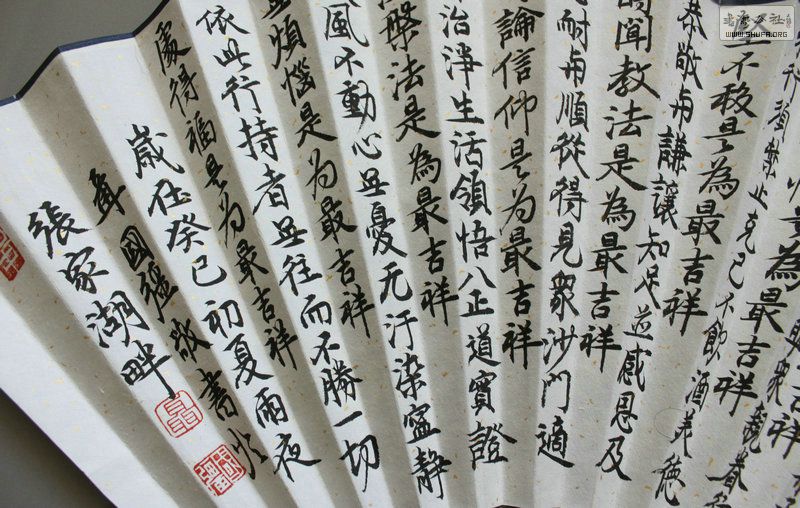 為最吉祥
行須禁止克己不飲酒美德
不移是為最吉祥
恭敬与謙讓知足並感恩及
時聞教法是為最吉祥
耐与順從得見衆沙門適
論信仰是为最吉祥
治淨生活領悟八正道實證
槃法是為最吉祥
風不動心無憂无汙染寧靜
煩惱是为最吉祥
依此行持者無往而不勝一切
處得福是为最吉祥
歲在癸巳初夏雨夜
國強敬書於
張家湖畔
WWW.SHUFA.ORG